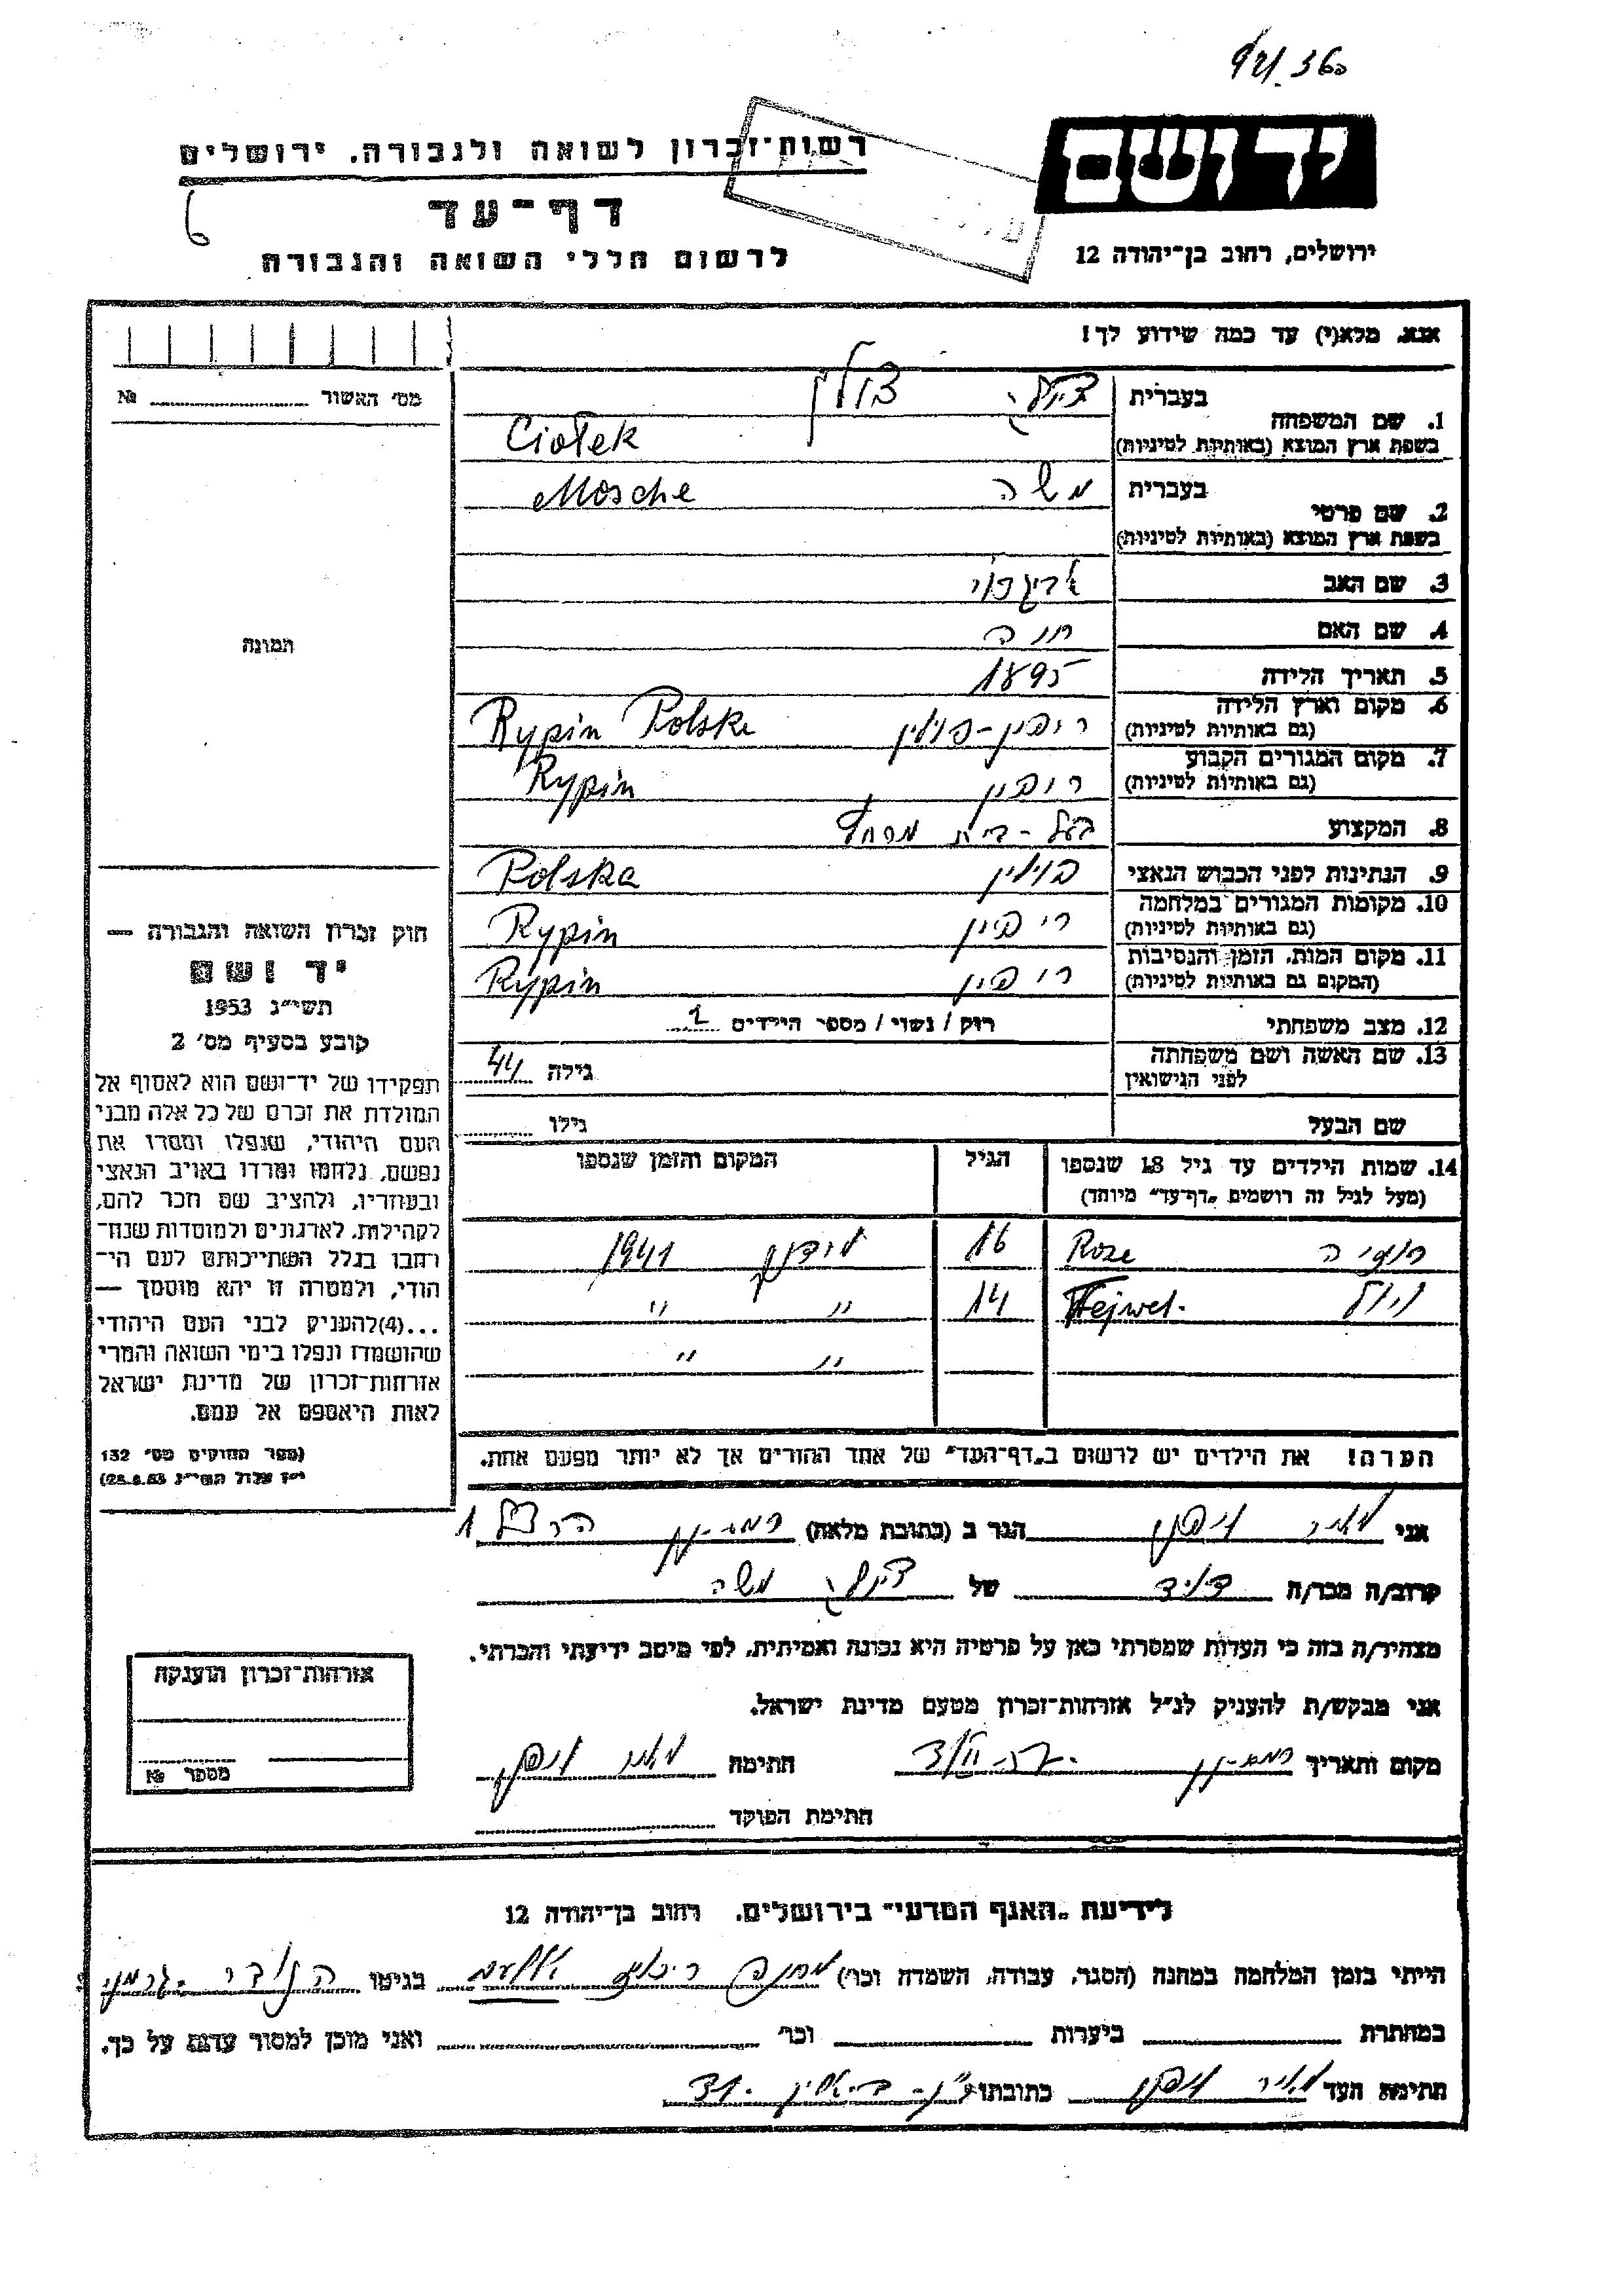 יד ושם
רשות־זכרון לשואה ולגבורה. ירושלים
דף־עד
ירושלים, רחוב בן־יהודה 12
לרשום חללי השואה והגבורה
אנא. מלא(י) עד כמה שידוע לך!
מס׳ האשור № 
1. שם המשפחה
בעברית
בשפת ארץ המוצא (באותיות לטיניות) Ciołek
2. שם פרטי
בעברית משה Mosche
בשפת ארץ המוצא (באותיות לטיניות)
3. שם האב
4. שם האם חוה
5. תאריך הלידה 1895
6. מקום וארץ הלידה
(גם באותיות לטיניות) ריפין-פולין Rypin Polske
7. מקום המגורים הקבוע
(גם באותיות לטיניות) ריפין Rypin
8. המקצוע בעל-בית מסחר
9. הנתינות לפני הכבוש הנאצי פולין Polska
10. מקומות המגורים במלחמה
(גם באותיות לטיניות) ריפין Rypin
11. מקום המות, הזמן והנסיבות
(המקום גם באותיות לטיניות) ריפין Rypin
12. מצב משפחתי רוק / נשוי / מספר הילדים 2
13. שם האשה ושם משפחתה
לפני הנישואין גילה 44
שם הבעל גילו
14. שמות הילדים עד גיל 18 שנספו הגיל המקום והזמן שנספו
(מעל לגיל זה רושמים „דף־עד״ מיוחד)
Roze 16 1941
Fejwel. 14 " "
" "
הערה! את הילדים יש לרשום ב„דף־העד״ של אחד ההורים אך לא יותר מפעם אחת.
תמונה
חוק זכרון השואה והגבורה —
יד ושם
תשי״ג 1953
קובע בסעיף מס׳ 2
תפקידו של יד־ושם הוא לאסוף אל
המולדת את זכרם של כל אלה מבני
העם היהודי, שנפלו ומסרו את
נפשם, נלחמו ומרדו באויב הנאצי
ובעוזריו, ולהציב שם וזכר להם,
לקהילות, לארגונים ולמוסדות שנח־
רבו בגלל השתייכותם לעם הי־
הודי, ולמטרה זו יהא מוסמך —
...(4)להעניק לבני העם היהודי
שהושמדו ונפלו בימי השואה והמרי
אזרחות־זכרון של מדינת ישראל
לאות היאספם אל עמם.
(ספר החוקים מס׳ 132
י״ז אלול תשי״ג 28.8.53)
אני מאיר הגר ב (כתובת מלאה) רמת-גן הרצל 1
קרוב/ה מכר/ה של משה
מצהיר/ה בזה כי העדות שמסרתי כאן על פרטיה היא נכונה ואמיתית, לפי מיטב ידיעתי והכרתי.
אני מבקש/ת להעניק לנ״ל אזרחות־זכרון מטעם מדינת ישראל.
מקום ותאריך רמת-גן חתימה מאיר
חתימת הפוקד
אזרחות־זכרון הוענקה
מספר №
לידיעת „האגף המדעי״ בירושלים. רחוב בן־יהודה 12
הייתי בזמן המלחמה במחנה (הסגר, עבודה, השמדה וכו׳) מחנה בגיטו
במחתרת ביערות וכו׳ ואני מוכן למסור עדות על כך.
חתימת העד מאיר כתובתו